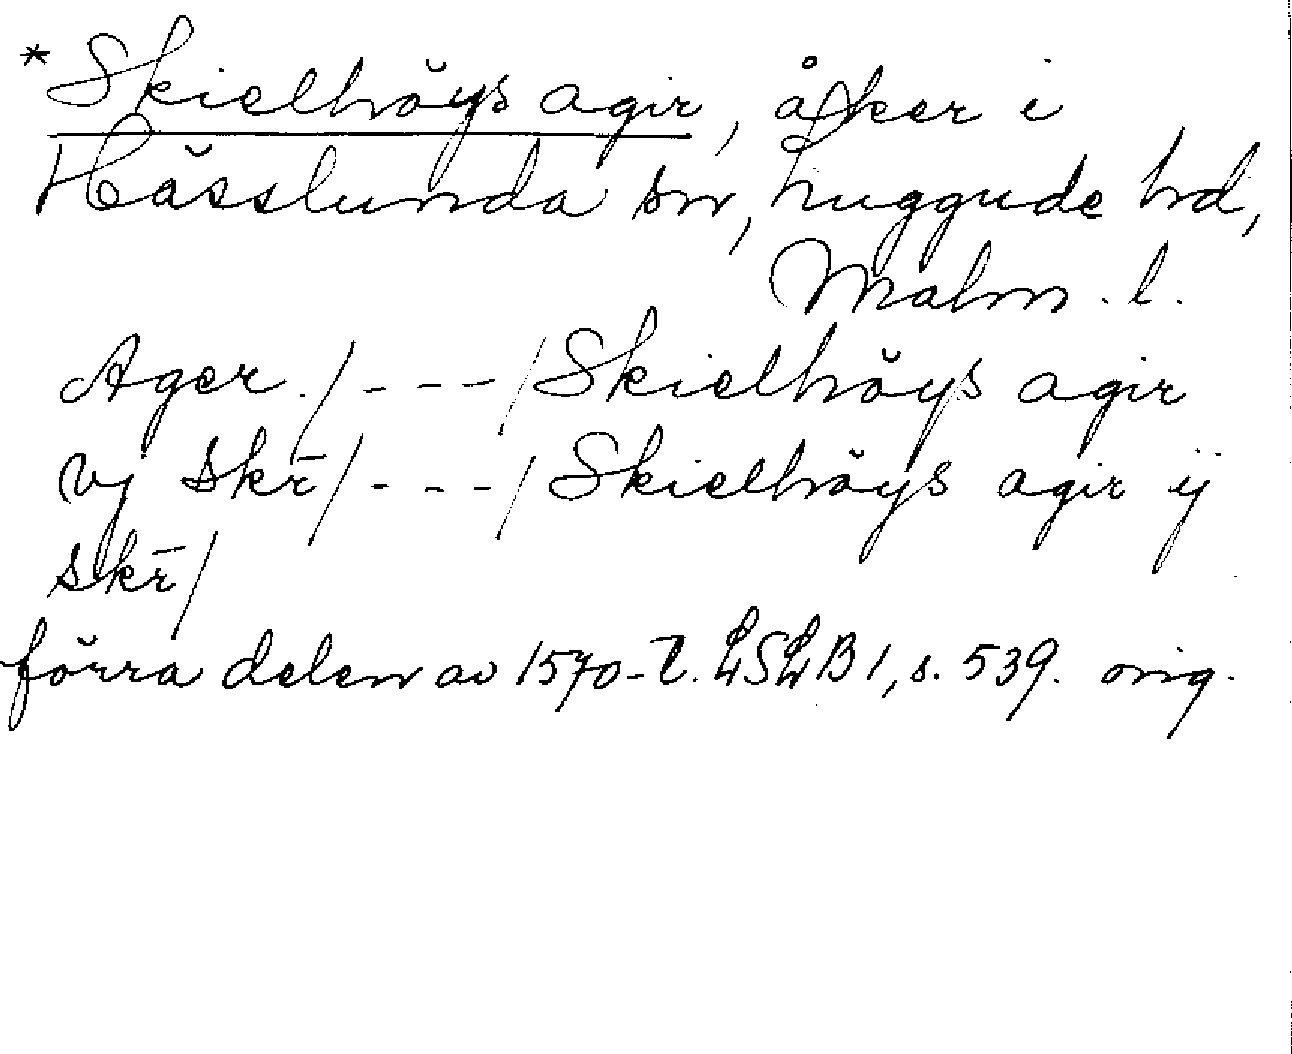 *Skielhöys agir, åker i
Hässlunda sn, Luggude hd,
Malm. l.
Ager. /---/ Skielhöys agir
vj skr̄ /---/ Skielhöys agir ij
skr̄/
förra delen av 1570-t. LSLB 1, s. 539. orig.